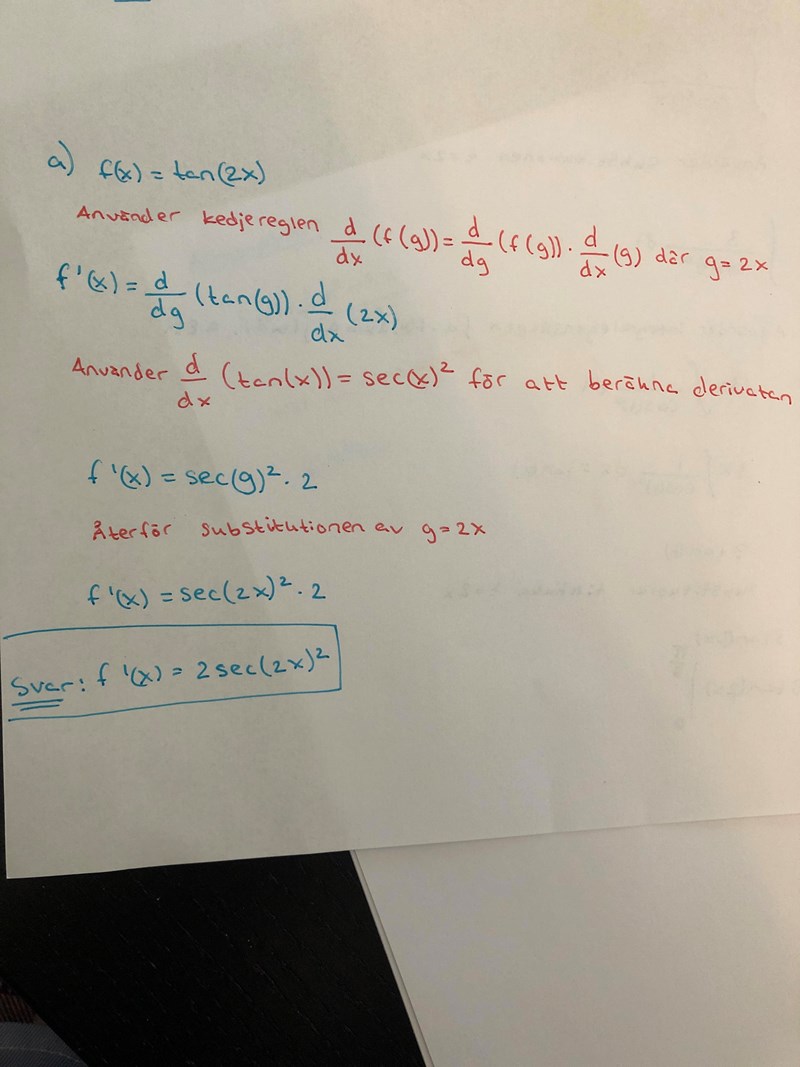 a) f(x) = tan(2x)
Använder kedjereglen d/dx (f(g)) = d/dg (f(g)) · d/dx (g) där g = 2x
f'(x) = d/dg (tan(g)) · d/dx (2x)
Använder d/dx (tan(x)) = sec(x)² för att beräkna derivatan
f'(x) = sec(g)² · 2
Återför substitutionen av g = 2x
f'(x) = sec(2x)² · 2
Svar: f'(x) = 2 sec(2x)²